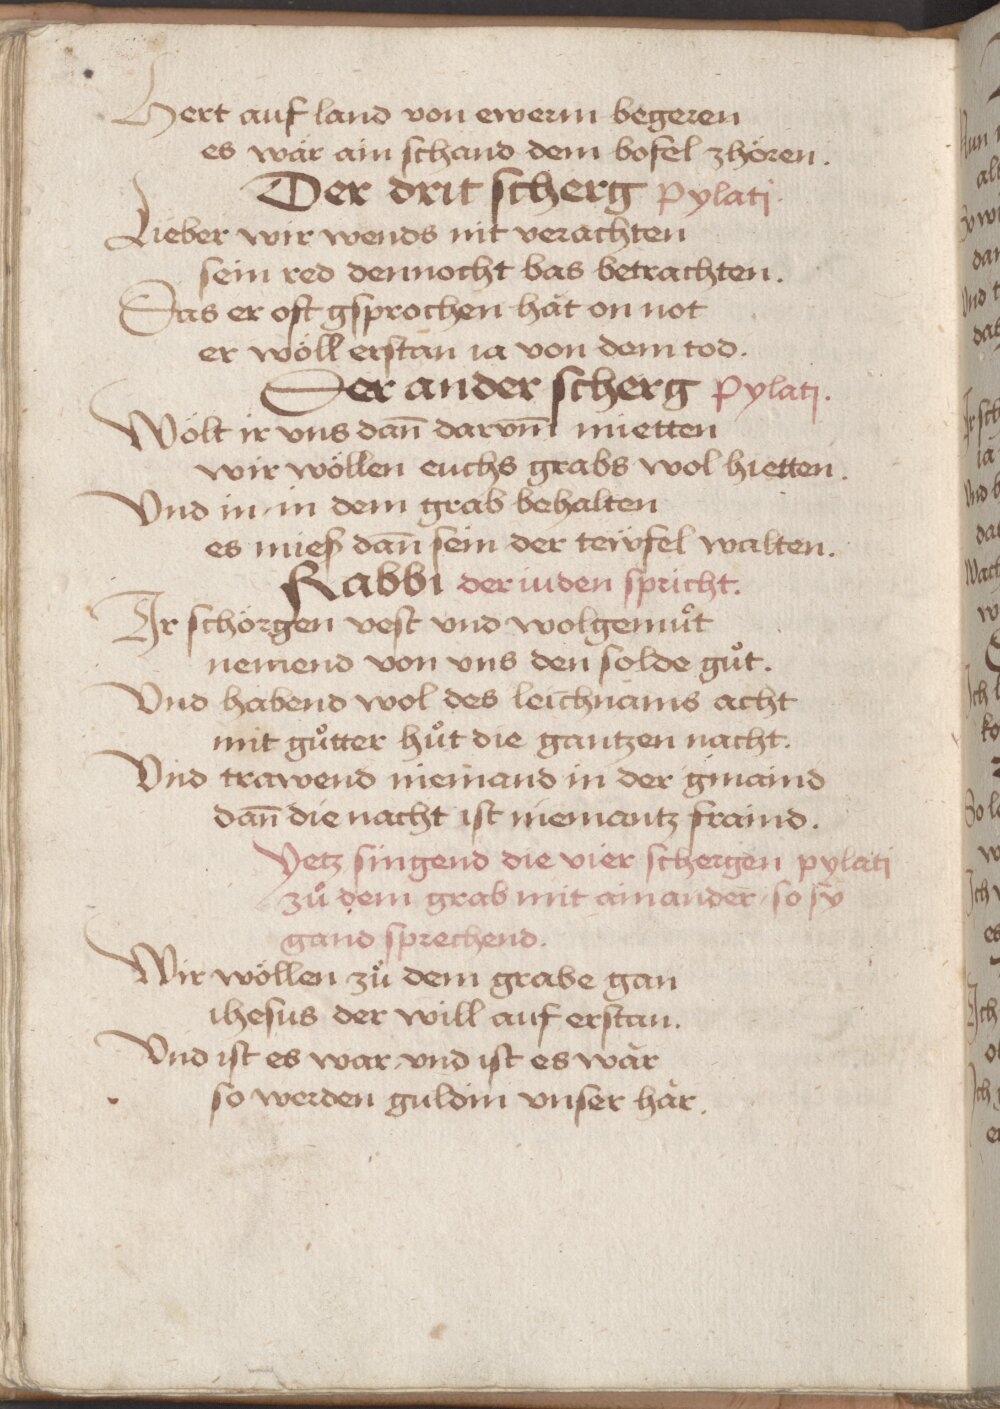 Hert auf land von ewerm begeren
es wär ain schand dem bofel zhören.
Der drit scherg Pylati.
Lieber wir wends nit verachten
sein red dennocht bas betrachten.
Das er oft gsprochen hat on not
er wöll erstan ia von dem tod.
Der ander scherg Pylati.
Wölt ir vns dan̄ darvm̄ mietten
wir wöllen euchs grabs wol hietten.
Vnd in in dem grab behalten
es mieß dan̄ sein der tewfel walten.
Rabbi der iuden spricht.
Ir schörgen vest vnd wolgemuͦt
nemend von vns den solde guͦt.
Vnd habend wol des leichnams acht
mit guͦtter huͦt die gantzen nacht.
Vnd trawend niemand in der gmaind
dan̄ die nacht ist niemantz fraind.
Yetz singend die vier schergen pylati
zuͦ dem grab mit ainander so sy
gand sprechend.
Wir wöllen zuͦ dem grabe gan
ihesus der will auf erstan.
Vnd ist es war vnd ist es wär
so werden guldin vnser här.